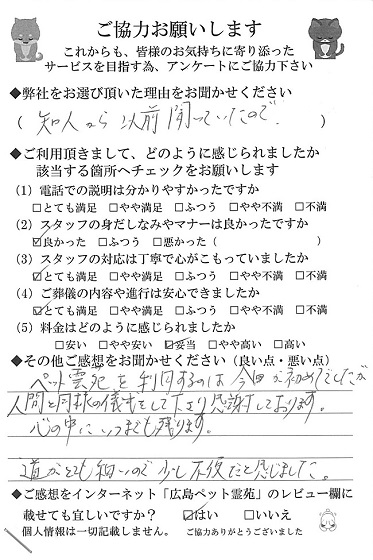 ご協力お願いします
これからも、皆様のお気持ちに寄り添った
サービスを目指す為、アンケートにご協力下さい
◆弊社をお選び頂いた理由をお聞かせください
( 知人から以前聞っていたので、 )
◆ご利用頂きまして、どのように感じられましたか
該当する箇所へチェックをお願いします
(1) 電話での説明は分かりやすかったですか
□とても満足 □やや満足 □ふつう □やや不満 □不満
(2) スタッフの身だしなみやマナーは良かったですか
☑良かった □ふつう □悪かった ( )
(3) スタッフの対応は丁寧で心がこもっていましたか
☑とても満足 □やや満足 □ふつう □やや不満 □不満
(4) ご葬儀の内容や進行は安心できましたか
☑とても満足 □やや満足 □ふつう □やや不満 □不満
(5) 料金はどのように感じられましたか
□安い □やや安い ☑妥当 □やや高い □高い
◆その他ご感想をお聞かせください (良い点・悪い点)
ペット霊苑を利用するのは今回が初めてでしたが
人間と同様の儀式をして下さり感謝しております。
心の中にいつまでも残ります。
道がとても細いので少し不便だと感じました。
◆ご感想をインターネット「広島ペット霊苑」のレビュー欄に
載せても宜しいですか? ☑はい □いいえ
個人情報は一切記載しません。 ご協力ありがとうございました